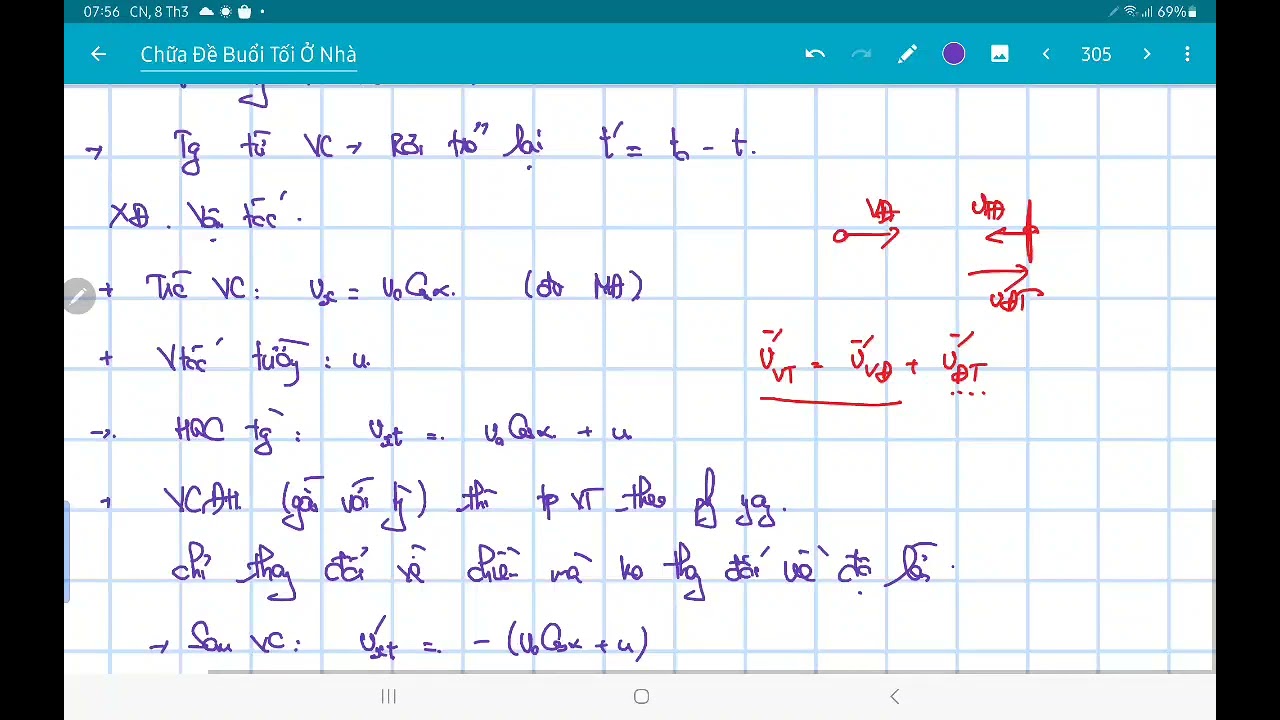 07:56 CN, 8 Th3 69%
Chữa Đề Buổi Tối Ở Nhà 305
→ Tg từ VC → Rơi trở lại t' = t₀ - t.
XĐ. Vận tốc.
+ Trc VC: vₓ = v₀Cosα. (do MĐ)
+ Vtốc tường: u
→ HQC tg: vₓₜ = v₀Cosα + u
+ VCĐH. (gắn với tg) thì tp VT theo pg
chỉ thay đổi về chiều mà ko thay đổi về độ lớn.
→ Sau VC: v'ₓₜ = - (v₀Cosα + u)
v_VĐ v_TĐ
v_ĐT
v_VT = v_VĐ + v_ĐT